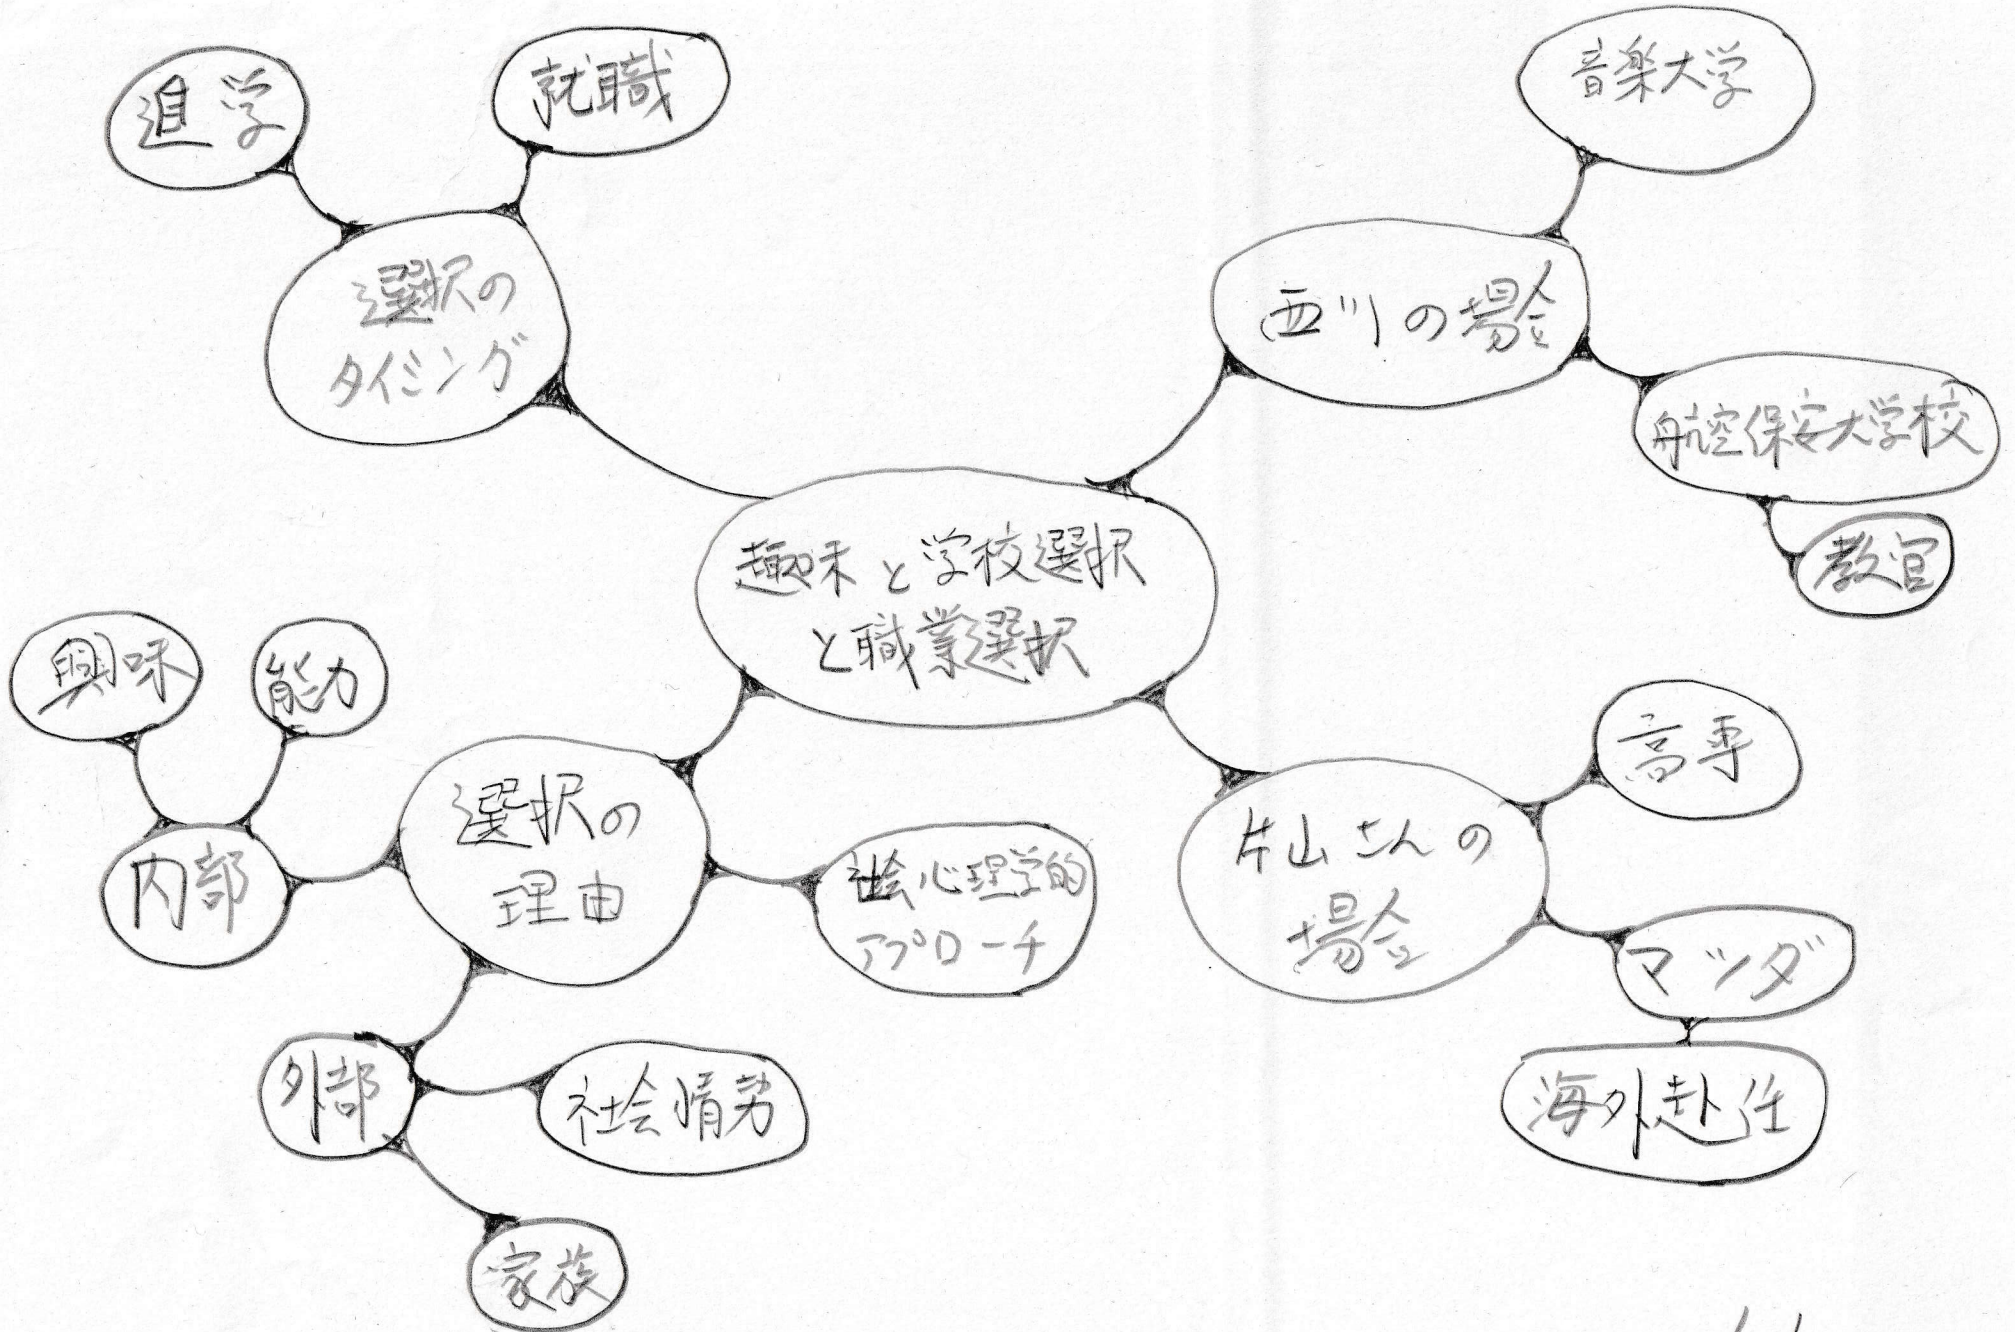 進学
就職
選択の
タイミング
音楽大学
西川の場合
航空保安大学校
教官
趣味と学校選択
と職業選択
興味
能力
内部
選択の
理由
社会心理学的
アプローチ
外部
社会情勢
家族
片山さんの
場合
高専
マツダ
海外赴任